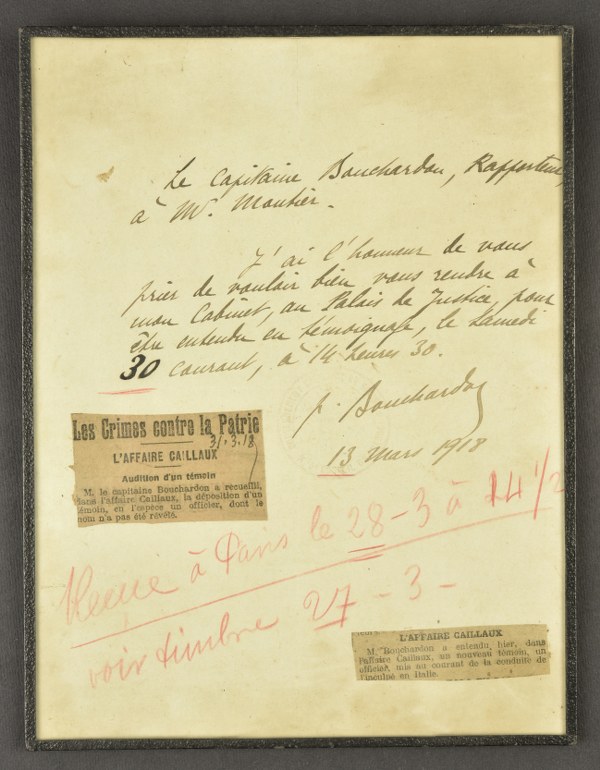 Le Capitaine Bouchardon, Rapporteur,
à Mr. Moutier.
J'ai l'honneur de vous
prier de vouloir bien vous rendre à
mon Cabinet, au Palais de Justice, pour
être entendu en témoignage, le Samedi
30 courant, à 14 heures 30.
P. Bouchardon
13 mars 1918
Les Crimes contre la Patrie
31.3.18
L'AFFAIRE CAILLAUX
Audition d'un témoin
M. le capitaine Bouchardon a recueilli,
dans l'affaire Caillaux, la déposition d'un
témoin, en l'espèce un officier, dont le
nom n'a pas été révélé.
à Paris le 28-3 à 14 1/2
voir timbre 27-3-
L'AFFAIRE CAILLAUX
M. Bouchardon a entendu hier, dans
l'affaire Caillaux, un nouveau témoin, un
officier, mis au courant de la conduite de
l'inculpé en Italie.